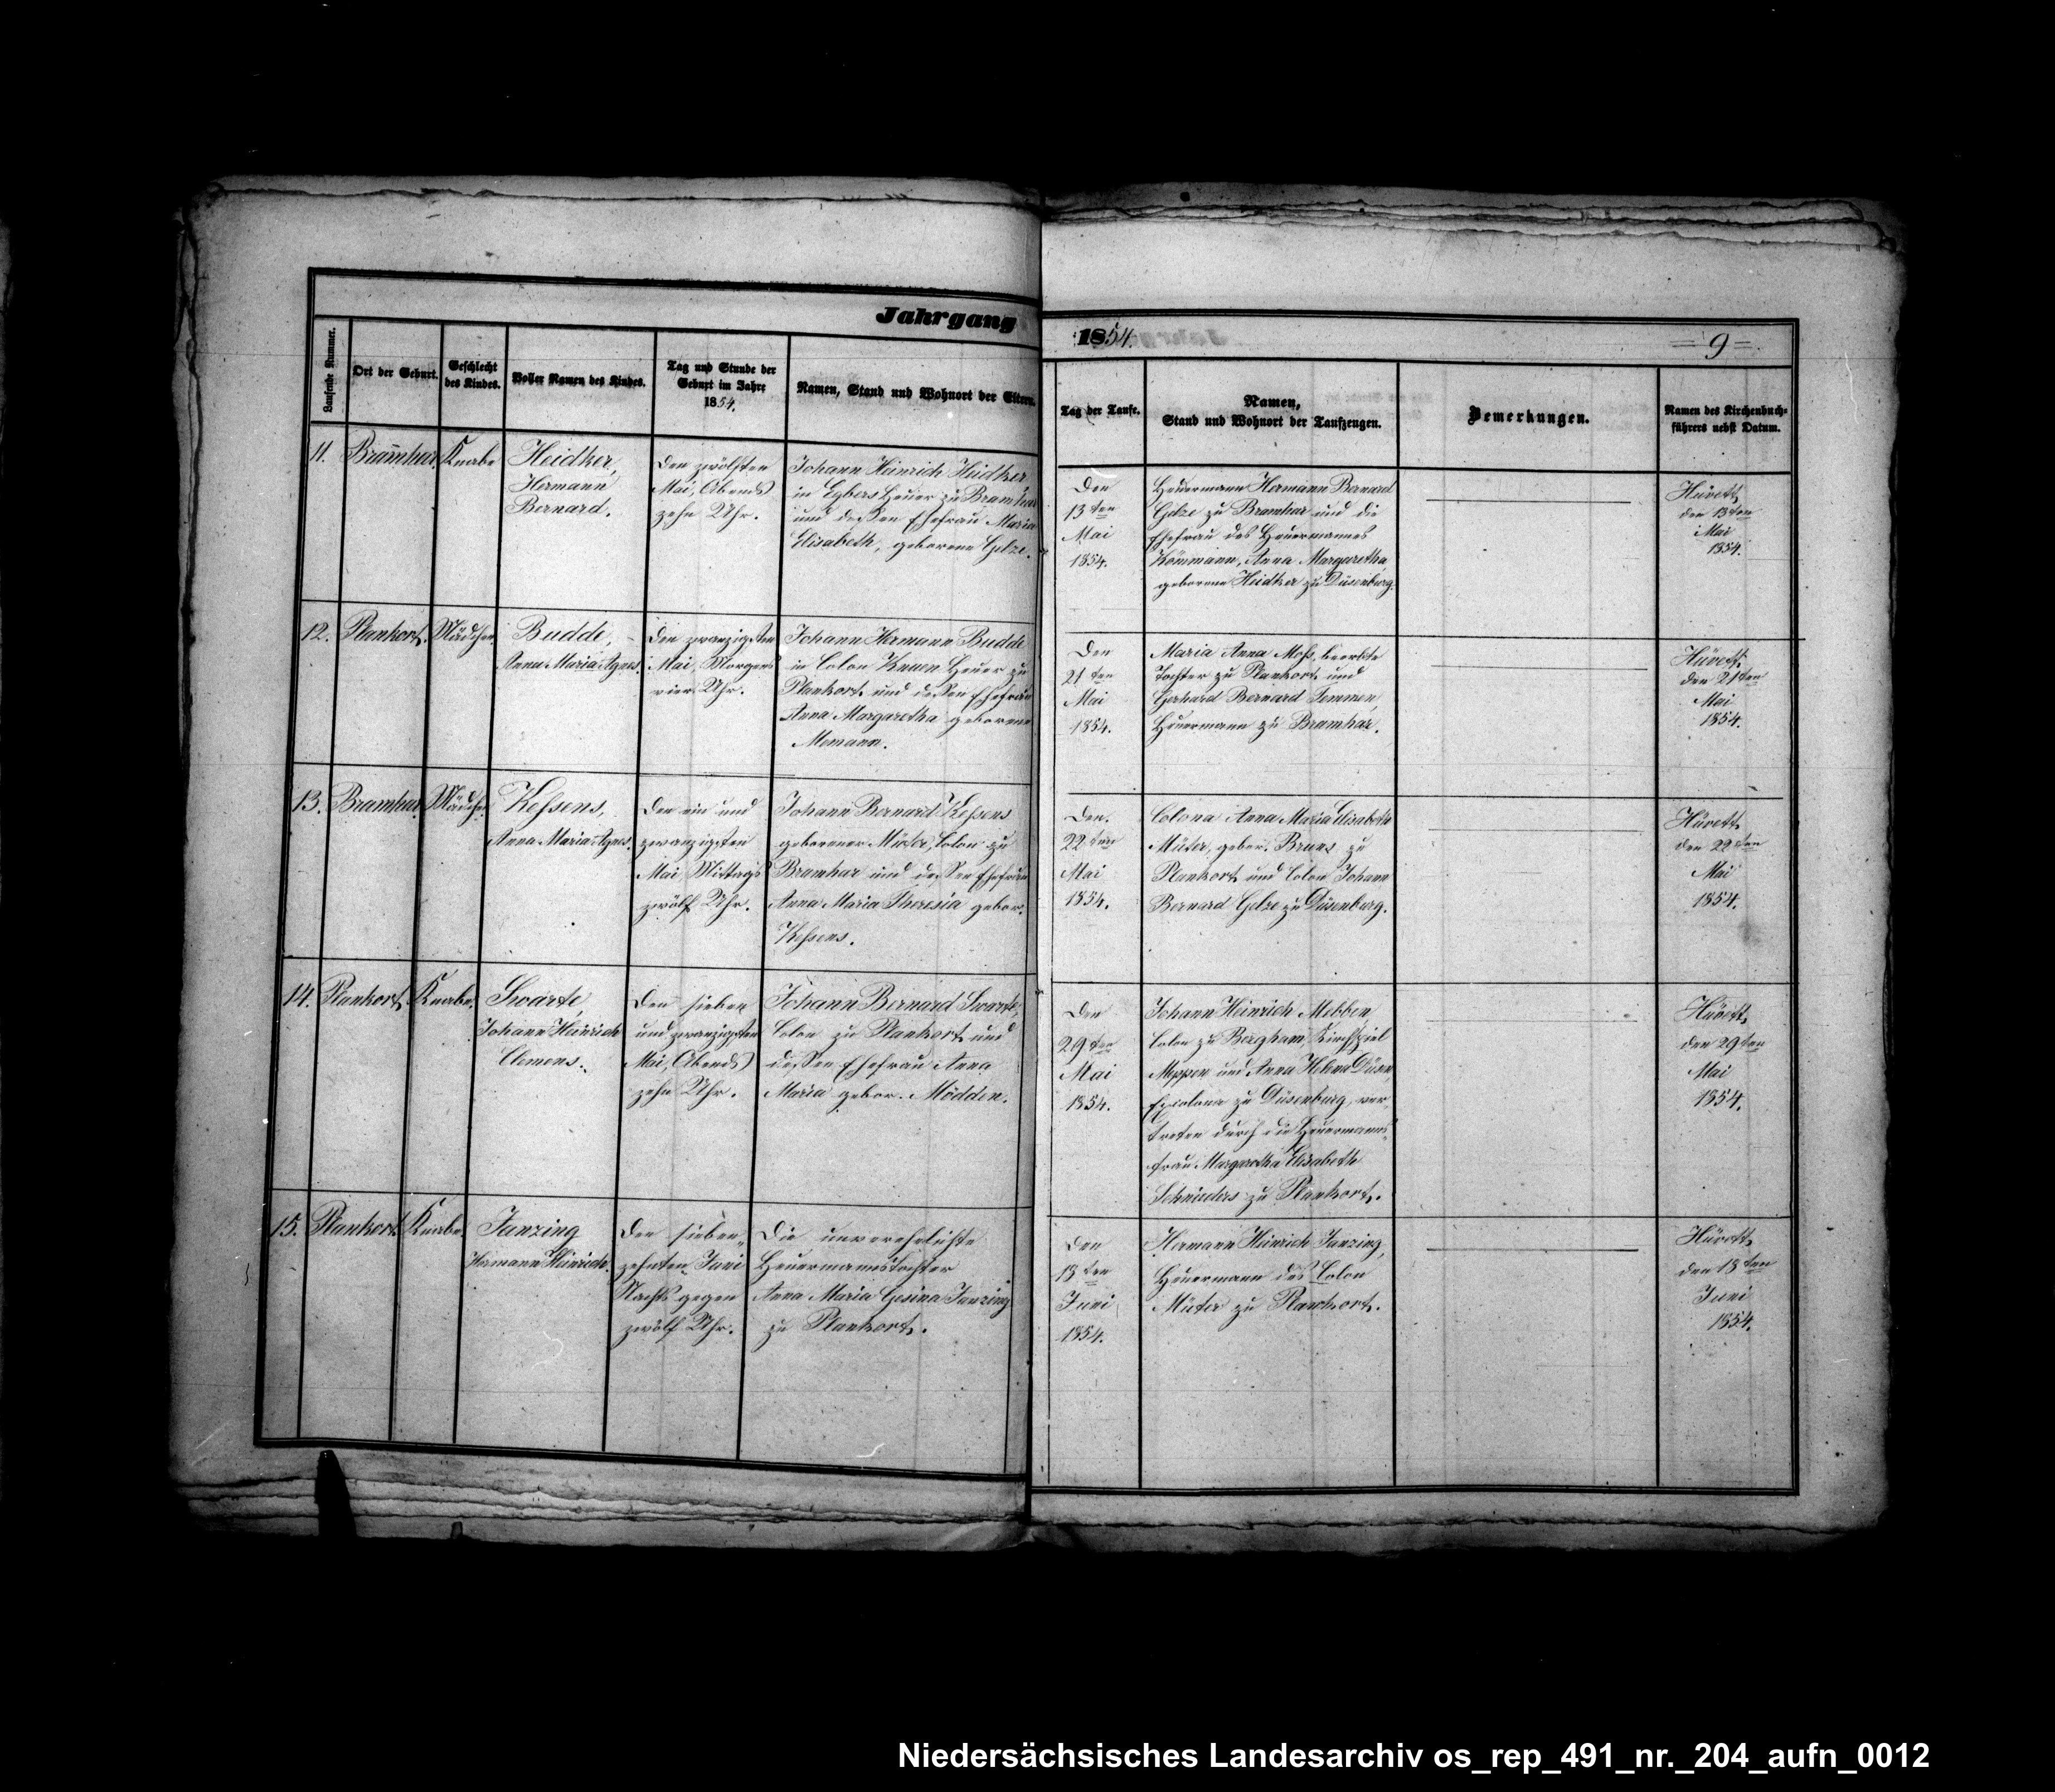 Jahrgang 1854.
= 9 =.
Laufende Nummer.
Ort der Geburt.
Geschlecht
des Kindes.
Voller Namen des Kindes.
Tag und Stunde der
Geburt im Jahre
1854.
Namen, Stand und Wohnort der Eltern.
Tag der Taufe.
Namen,
Stand und Wohnort der Taufzeugen.
Bemerkungen.
Namen des Kirchenbuch-
führers nebst Datum.
11.
Bramhar.
Knabe
Heidker,
Hermann
Bernard.
Den zwölften
Mai, Abends
zehn Uhr.
Johann Heinrich Heidker
in Egbers Heuer zu Bramhar
und dessen Ehefrau Maria
Elisabeth, geborene Gelze.
Den
13ten
Mai
1854.
Heuermann Hermann Bernard
Gelze zu Bramhar und die
Ehefrau des Heuermannes
Anna Margaretha
geborene Heidker zu Düsenburg.
Hüvett
den 13ten
Mai
1854.
12.
Plankort.
Mädchen.
Budde,
Anna Maria Agnes.
Den zwanzigsten
Mai, Morgens
vier Uhr.
Johann Hermann Budde
in Colon Knuen Heuer zu
Plankort und dessen Ehefrau
Anna Margaretha geborene
Memann.
Den
21ten
Mai
1854.
Maria Anna Moß, beerbte
Tochter zu Plankort und
Gerhard Bernard Temmen,
Heuermann zu Bramhar.
Hüvett
den 21ten
Mai
1854.
13.
Bramhar.
Mädchen.
Keßens,
Anna Maria Agnes.
Den ein und
zwanzigsten
Mai Mittags
zwölf Uhr.
Johann Bernard Keßens
geborener Müter, Colon zu
Bramhar und dessen Ehefrau
Anna Maria Theresia gebor.
Keßens.
Den.
22ten
Mai
1854.
Colona Anna Maria Elisabeth
Müter, gebor. Bruns zu
Plankort und Colon Johann
Bernard Gelze zu Düsenburg.
Hüvett
den 22ten
Mai
1854.
14.
Plankort
Knabe.
Swarte,
Johann Heinrich
Clemens.
Den sieben
und zwanzigsten
Mai, Abends
zehn Uhr.
Johann Bernard Swarte,
Colon zu Plankort und
dessen Ehefrau Anna
Maria gebor. Mödden.
Den
29ten
Mai
1854.
Johann Heinrich Mebben
Colon zu Bergham, Kirchspiel
Meppen und Anna Helena Düsen
Excolona zu Düsenburg, ver,
treten durch die Heuermanns,
frau Margaretha Elisabeth
Schnieders zu Plankort.
Hüvett
den 29ten
Mai
1854.
15.
Plankort
Knabe
Janzing
Hermann Heinrich.
Den sieben,
zehnten Juni
Nachts gegen
zwölf Uhr.
Die unverehelichte
Heuermannstochter
Anna Maria Gesina Janzing
zu Plankort.
Den
18ten
Juni
1854.
Hermann Heinrich Janzing,
Heuermann des Colon
Müter zu Plankort.
Hüvett
den 18ten
Juni
1854.
Niedersächsisches Landesarchiv os_rep_491_nr._204_aufn_0012